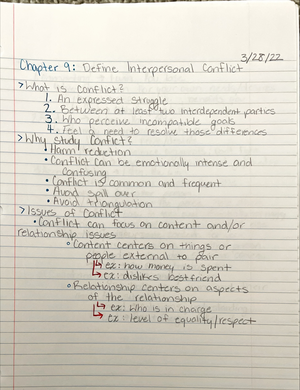 3/28/22
Chapter 9: Define Interpersonal Conflict
> What is Conflict?
1. An expressed struggle
2. Between at least two interdependent parties
3. Who perceive incompatible goals
4. Feel a need to resolve those differences
> Why study Conflict?
• Harm reduction
• Conflict can be emotionally intense and
confusing
• Conflict is common and frequent
• Avoid spill over
• Avoid triangulation
> Issues of Conflict
• Conflict can focus on content and/or
relationship issues
• Content centers on things or
people external to pair
↳ ex: how money is spent
↳ ex: dislikes bestfriend
• Relationship centers on aspects
of the relationship
↳ ex: who is in charge
↳ ex: level of equality/respect